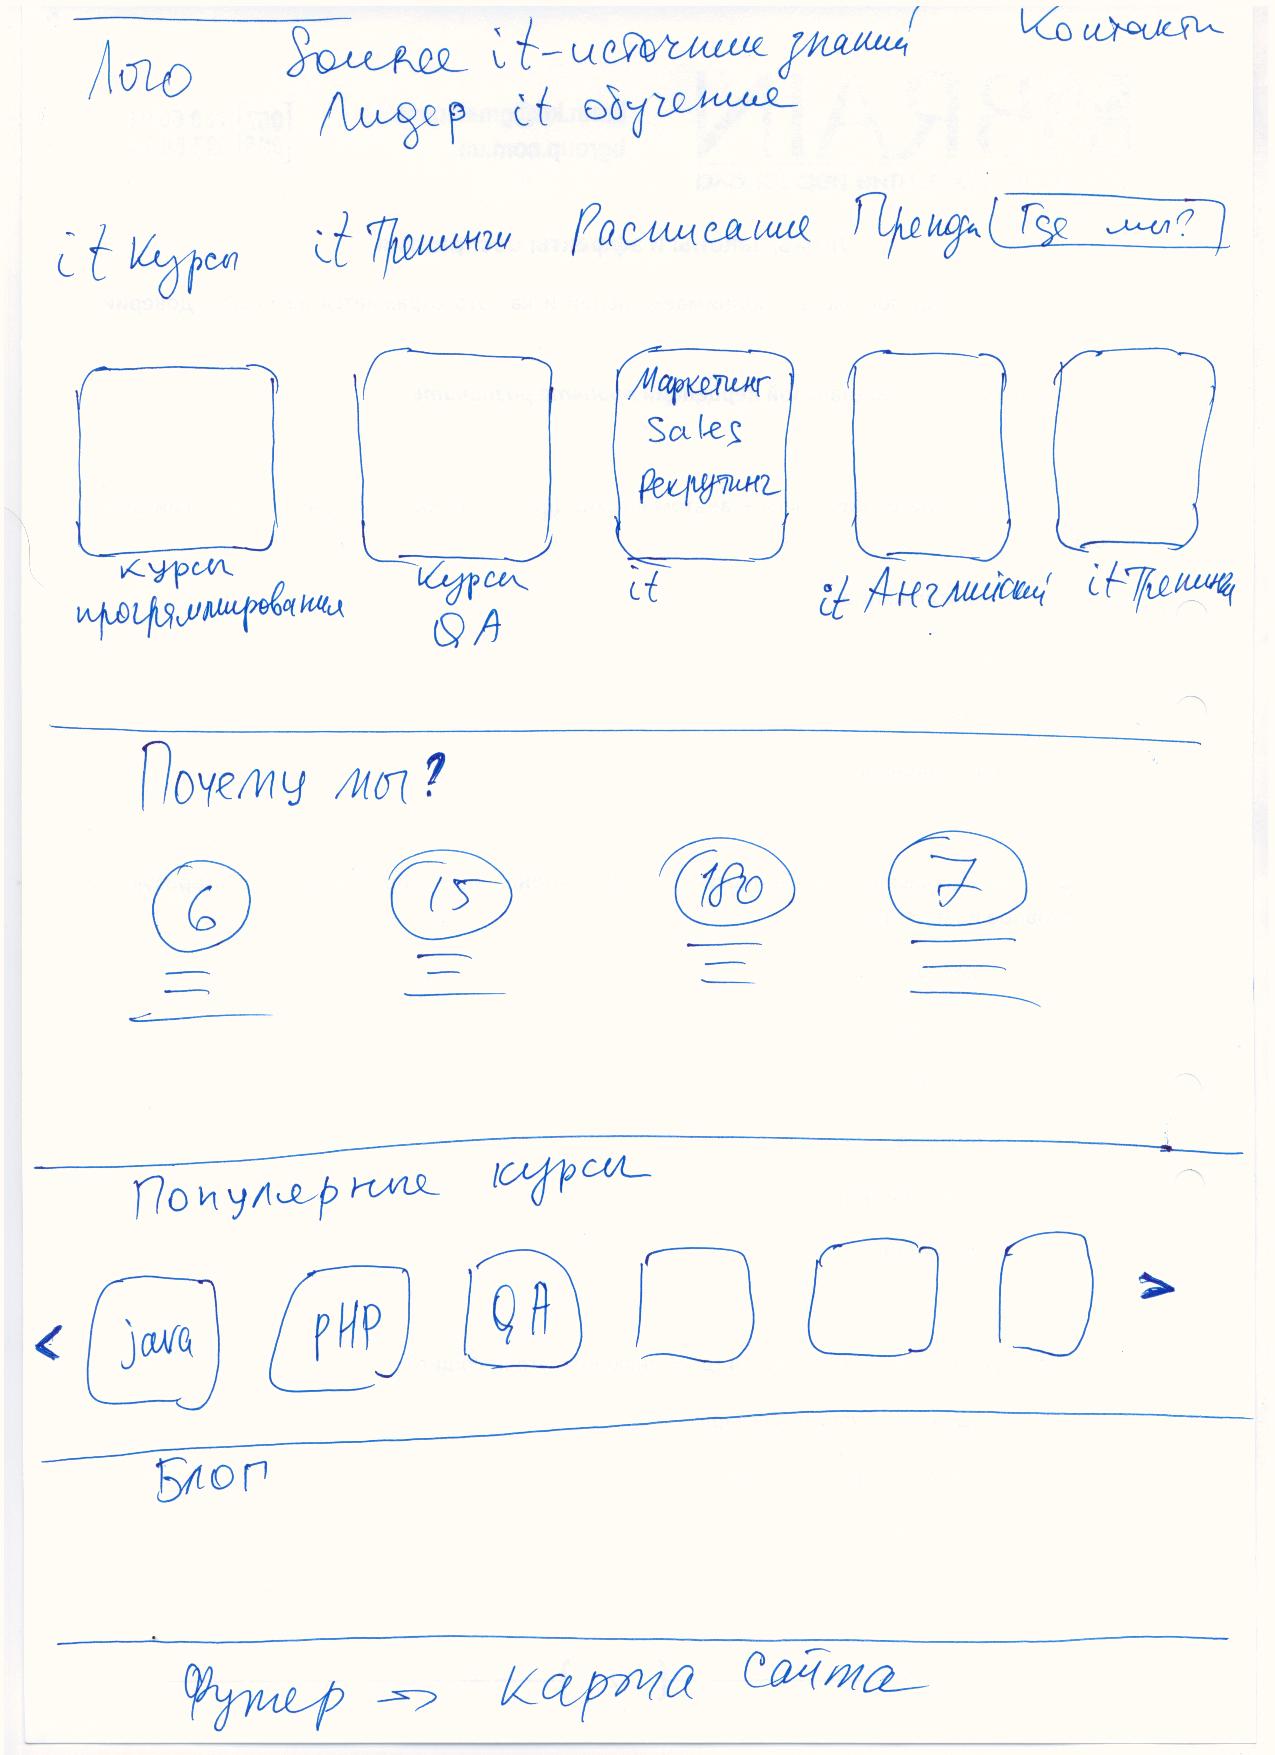 Лого
Source it-источник знаний
Контакты
Лидер it обучение
it Курсы
it Тренинги
Расписание
Где мы?
Маркетинг
Sales
Рекрутинг
курсы
программирования
Курсы
QA
it
it Английский
it Тренинги
Почему мы?
6
15
180
7
Популярные курсы
<
java
PHP
QA
>
Блог
Футер => карта сайта